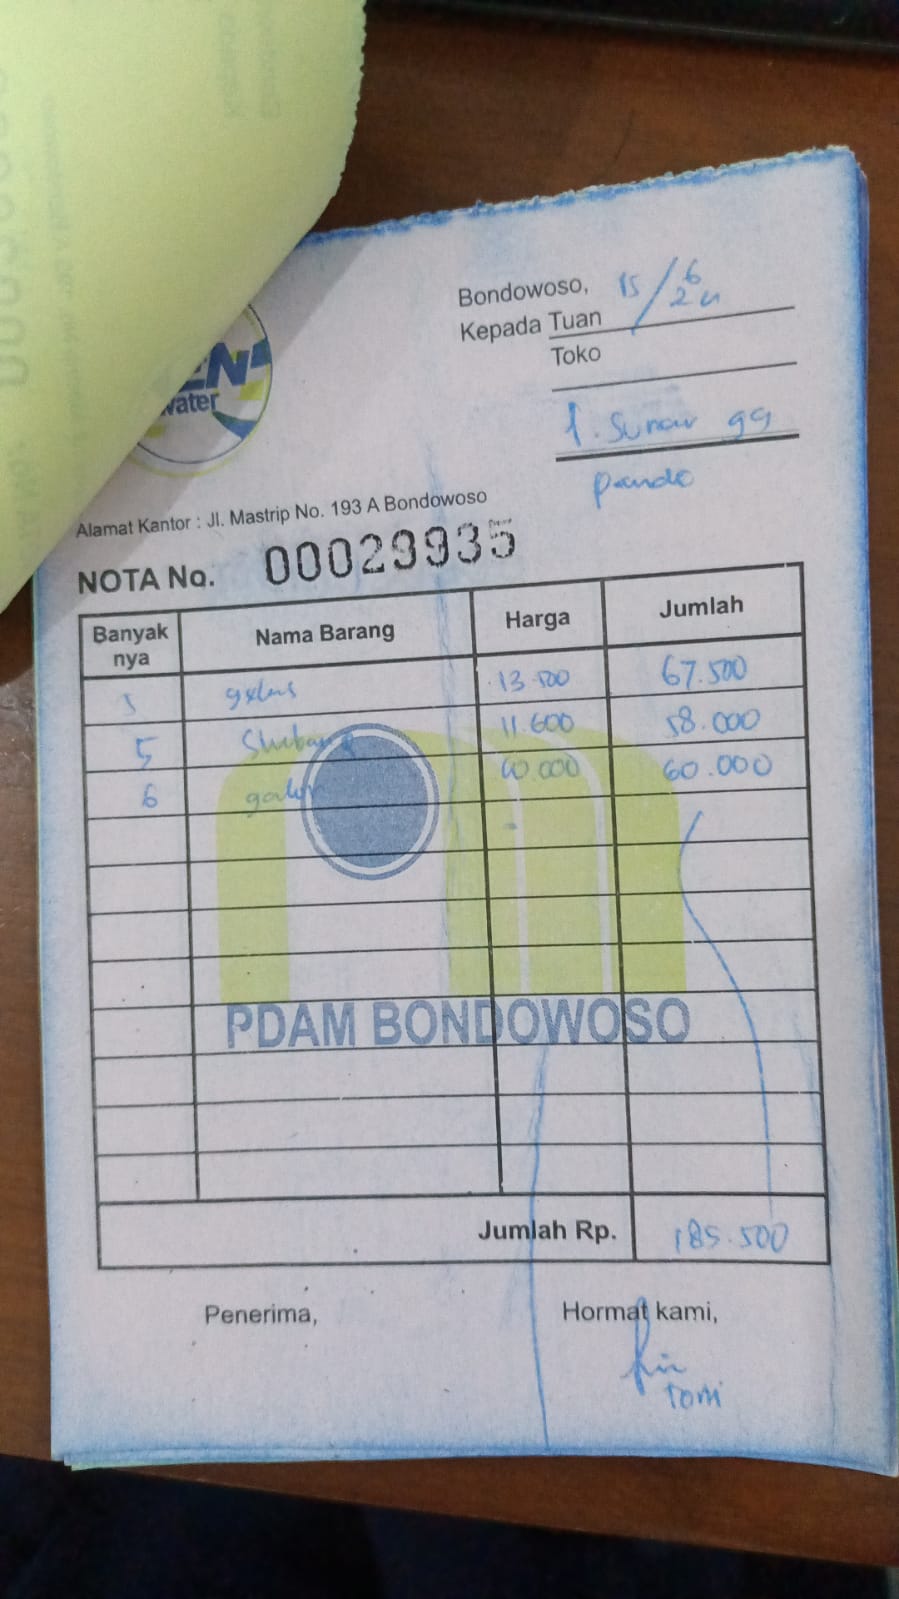 Bondowoso, 15/6 24
Kepada Tuan
Toko
EN
water
pando
Alamat Kantor : Jl. Mastrip No. 193 A Bondowoso
NOTA No. 00029935
Banyak nya Nama Barang Harga Jumlah
5 gelas 13.500 67.500
5 11.600 58.000
6 galon 60.000
PDAM BONDOWOSO
Jumlah Rp. 185.500
Penerima, Hormat kami,
Tomi